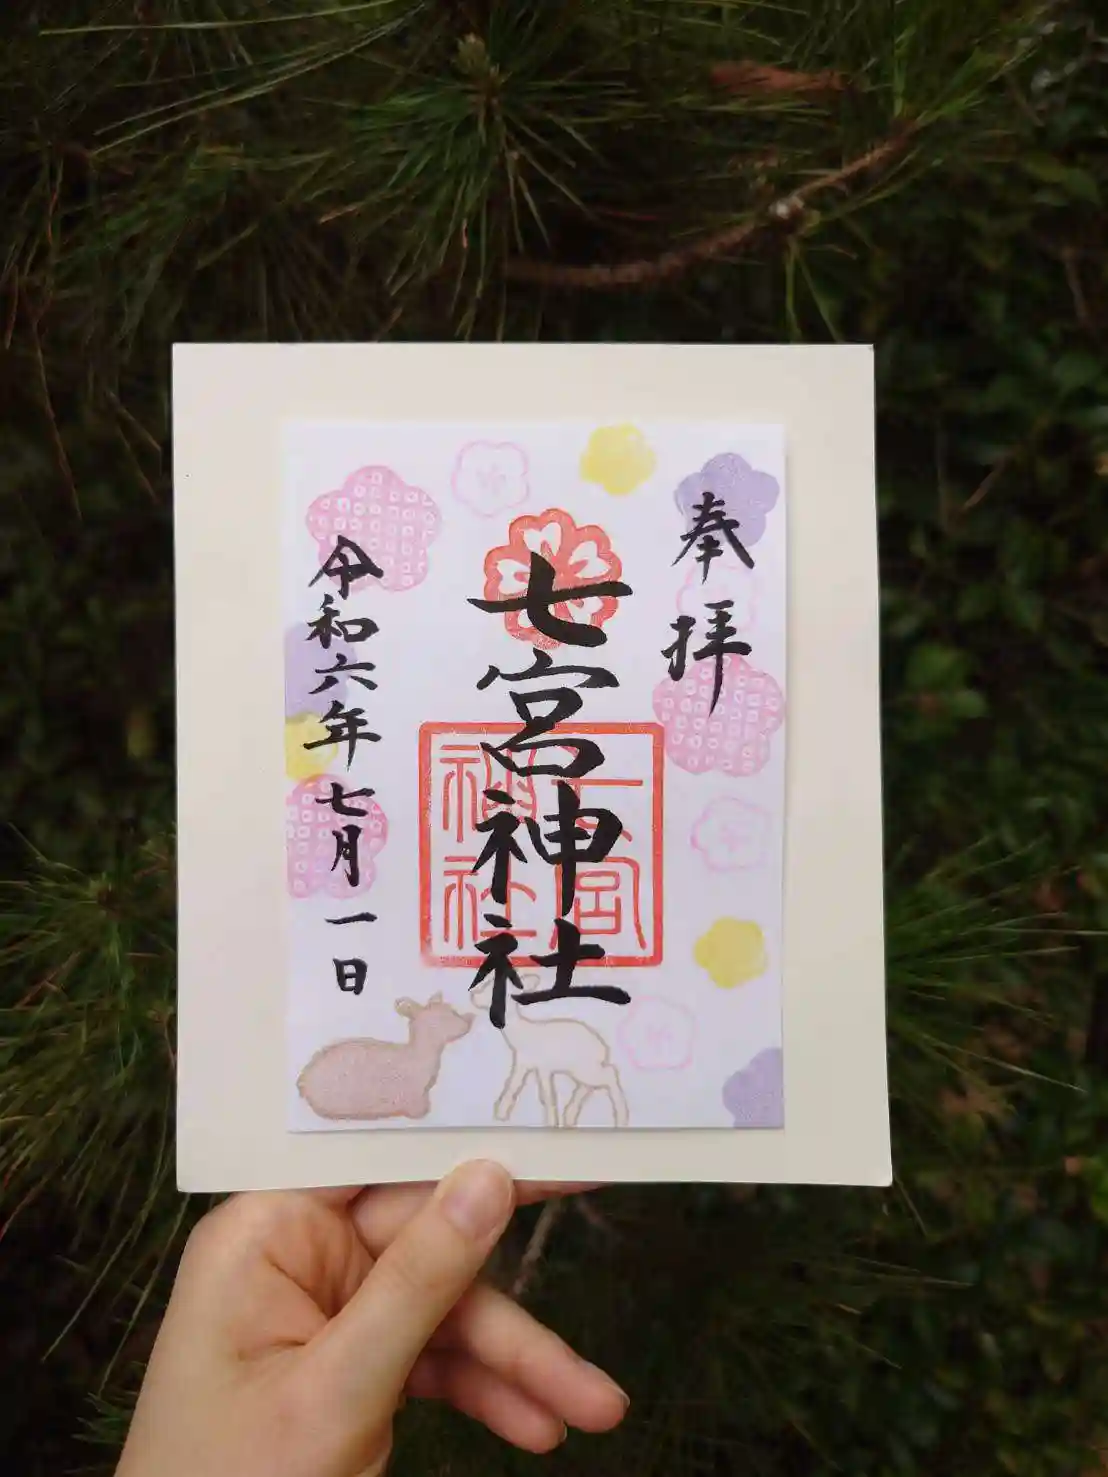 奉拝
七宮神社
七宮神社
令和六年七月一日